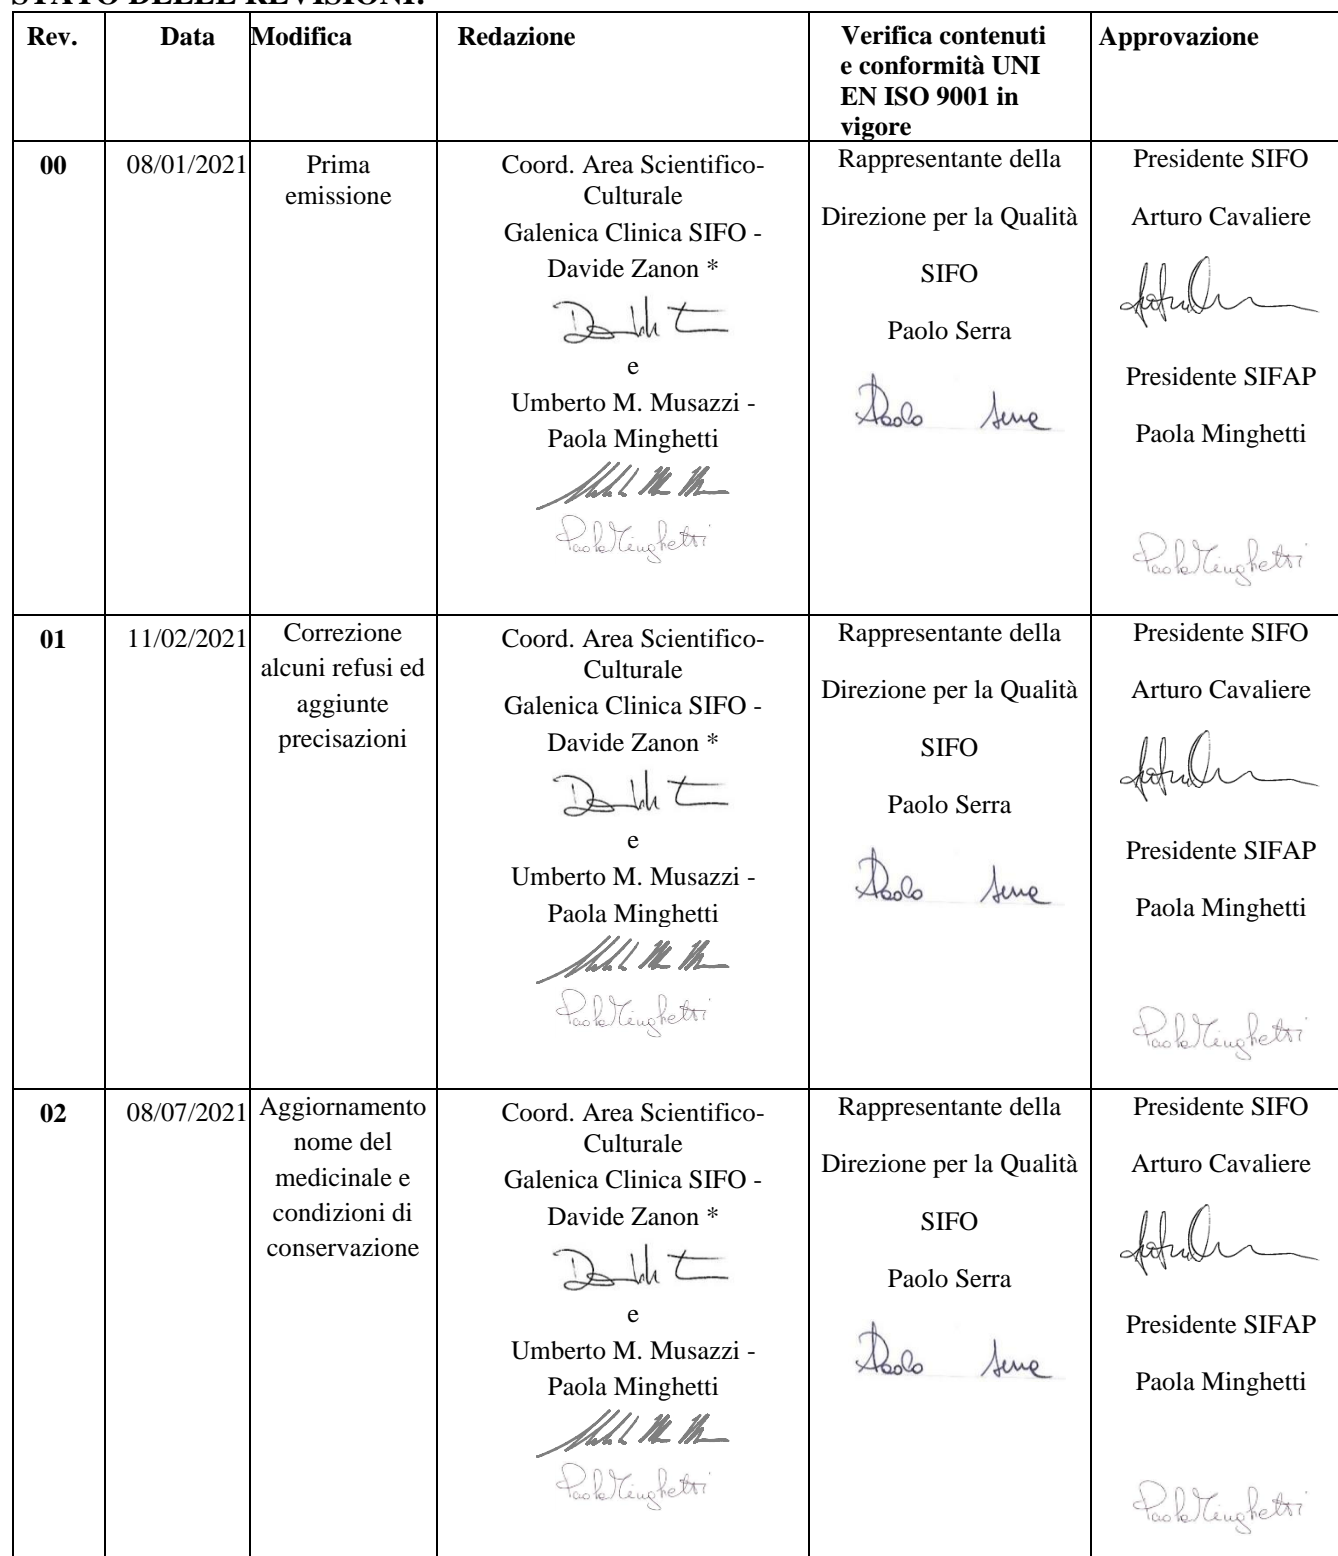 STATO DELLE REVISIONI:
Rev.
Data
Modifica
Redazione
Verifica contenuti
e conformità UNI
EN ISO 9001 in
vigore
Approvazione
00
08/01/2021
Prima
emissione
Coord. Area Scientifico-
Culturale
Galenica Clinica SIFO -
Davide Zanon *
e
Umberto M. Musazzi -
Paola Minghetti
Paola Minghetti
Rappresentante della
Direzione per la Qualità
SIFO
Paolo Serra
Paolo Serra
Presidente SIFO
Arturo Cavaliere
Presidente SIFAP
Paola Minghetti
Paola Minghetti
01
11/02/2021
Correzione
alcuni refusi ed
aggiunte
precisazioni
Coord. Area Scientifico-
Culturale
Galenica Clinica SIFO -
Davide Zanon *
e
Umberto M. Musazzi -
Paola Minghetti
Paola Minghetti
Rappresentante della
Direzione per la Qualità
SIFO
Paolo Serra
Paolo Serra
Presidente SIFO
Arturo Cavaliere
Presidente SIFAP
Paola Minghetti
Paola Minghetti
02
08/07/2021
Aggiornamento
nome del
medicinale e
condizioni di
conservazione
Coord. Area Scientifico-
Culturale
Galenica Clinica SIFO -
Davide Zanon *
e
Umberto M. Musazzi -
Paola Minghetti
Paola Minghetti
Rappresentante della
Direzione per la Qualità
SIFO
Paolo Serra
Paolo Serra
Presidente SIFO
Arturo Cavaliere
Presidente SIFAP
Paola Minghetti
Paola Minghetti